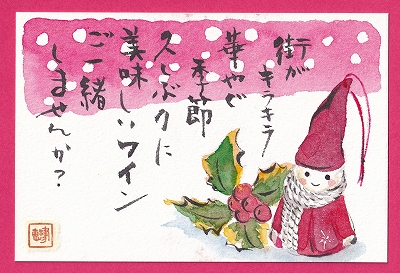 街が
キラキラ
華やぐ
季節
久しぶりに
美味しいワイン
ご一緒
しませんか？